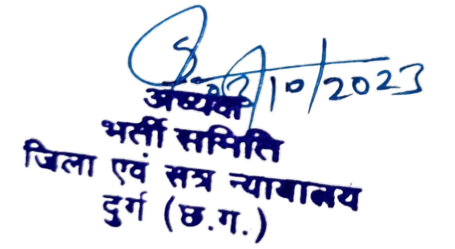 /10/2023
अध्यक्ष
भर्ती समिति
जिला एवं सत्र न्यायालय
दुर्ग (छ.ग.)